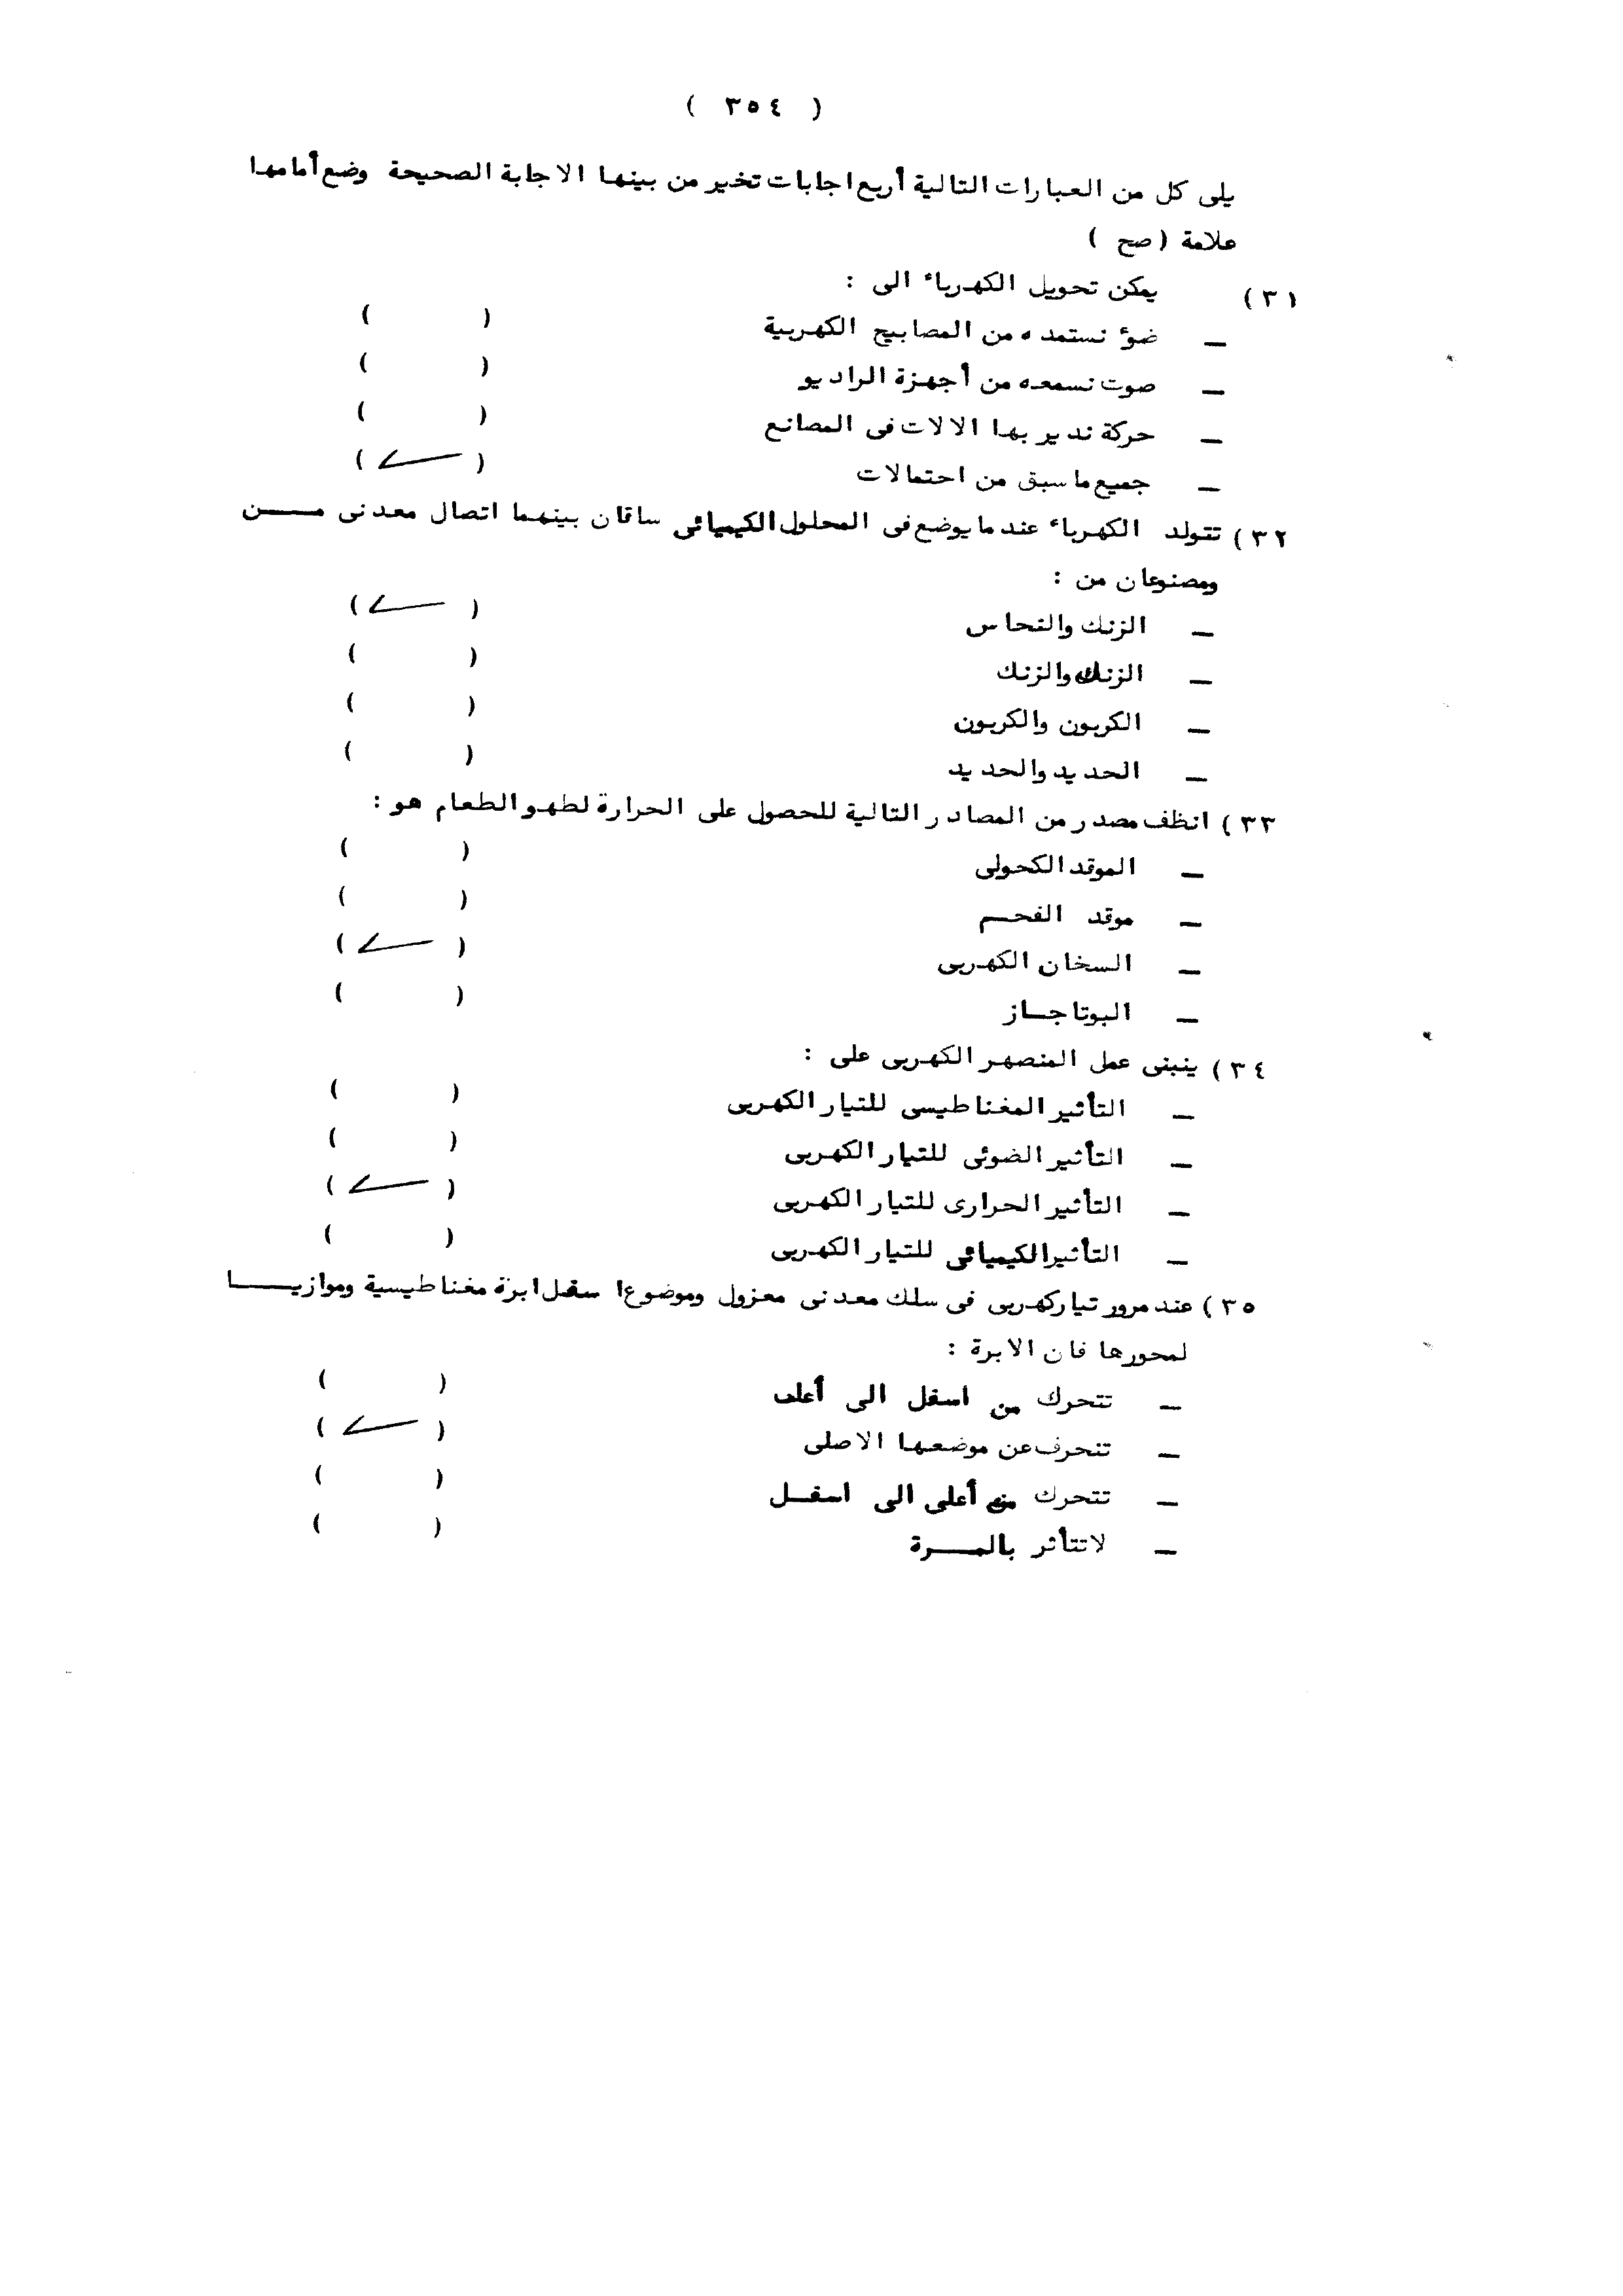 ( ٣٥٤ )
يلى كل من العبارات التالية أربع اجابات تخير من بينها الاجابة الصحيحة وضع أمامها
علامة ( صح )
٣١ ) يمكن تحويل الكهرباء الى :
ـ ضوء نستمده من المصابيح الكهربية ( )
ـ صوت نسمعه من أجهزة الراديو ( )
ـ حركة ندير بها الالات فى المصانع ( )
ـ جميع ماسبق من احتمالات ( ✓ )
٣٢ ) تتولد الكهرباء عندما يوضع فى المحلول الكيميائى ساقان بينهما اتصال معدنى مـــن
ومصنوعان من :
ـ الزنك والنحاس ( ✓ )
ـ الزنك والزنك ( )
ـ الكربون والكربون ( )
ـ الحديد والحديد ( )
٣٣ ) انظف مصدر من المصادر التالية للحصول على الحرارة لطهو الطعام هو :
ـ الموقد الكحولى ( )
ـ موقد الفحـم ( )
ـ السخان الكهربى ( ✓ )
ـ البوتاجـاز ( )
٣٤ ) ينبنى عمل المنصهر الكهربى على :
ـ التأثير المغناطيسى للتيار الكهربى ( )
ـ التأثير الضوئى للتيار الكهربى ( )
ـ التأثير الحرارى للتيار الكهربى ( ✓ )
ـ التأثير الكيميائى للتيار الكهربى ( )
٣٥ ) عند مرور تيار كهربى فى سلك معدنى معزول وموضوعا سفل ابرة مغناطيسية وموازيـــا
لمحورها فان الابرة :
ـ تتحرك من اسفل الى أعلى ( )
ـ تنحرف عن موضعها الاصلى ( ✓ )
ـ تتحرك من أعلى الى اسفـل ( )
ـ لاتتأثر بالمـــرة ( )